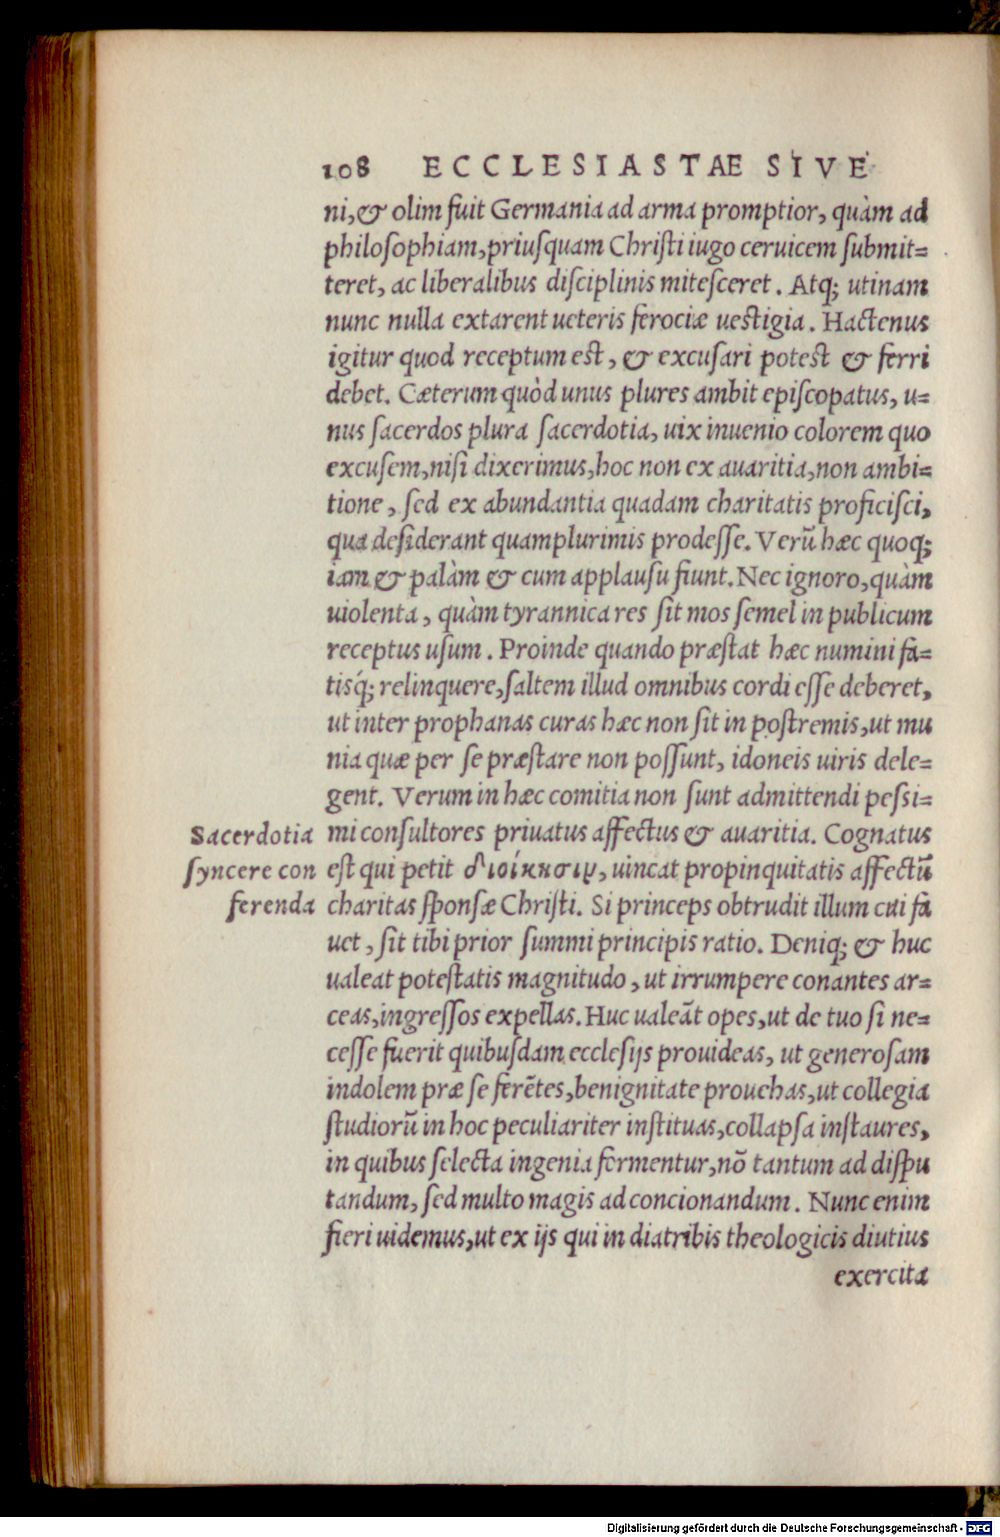 108 ECCLESIASTAE SIVE
ni, & olim fuit Germania ad arma promptior, quàm ad
philosophiam, priusquam Christi iugo ceruicem submit=
teret, ac liberalibus disciplinis mitesceret. Atq; utinam
nunc nulla extarent ueteris ferociæ uestigia. Hactenus
igitur quod receptum est, & excusari potest & ferri
debet. Cæterum quòd unus plures ambit episcopatus, u=
nus sacerdos plura sacerdotia, uix inuenio colorem quo
excusem, nisi dixerimus, hoc non ex auaritia, non ambi=
tione, sed ex abundantia quadam charitatis proficisci,
qua desiderant quamplurimis prodesse. Verũ hæc quoq;
iam & palàm & cum applausu fiunt. Nec ignoro, quàm
uiolenta, quàm tyrannica res sit mos semel in publicum
receptus usum. Proinde quando præstat hæc numini fa=
tisq́; relinquere, saltem illud omnibus cordi esse deberet,
ut inter prophanas curas hæc non sit in postremis, ut mu
nia quæ per se præstare non possunt, idoneis uiris dele=
gent. Verum in hæc comitia non sunt admittendi pessi=
Sacerdotia
syncere con
ferenda
mi consultores priuatus affectus & auaritia. Cognatus
est qui petit διοίκησιν, uincat propinquitatis affectũ
charitas sponsæ Christi. Si princeps obtrudit illum cui fa
uet, sit tibi prior summi principis ratio. Deniq; & huc
ualeat potestatis magnitudo, ut irrumpere conantes ar=
ceas, ingressos expellas. Huc ualeãt opes, ut de tuo si ne=
cesse fuerit quibusdam ecclesijs prouideas, ut generosam
indolem præ se ferẽtes, benignitate prouehas, ut collegia
studiorũ in hoc peculiariter instituas, collapsa instaures,
in quibus selecta ingenia fermentur, nõ tantum ad dispu
tandum, sed multo magis ad concionandum. Nunc enim
fieri uidemus, ut ex ijs qui in diatribis theologicis diutius
exercita
Digitalisierung gefördert durch die Deutsche Forschungsgemeinschaft - DFG